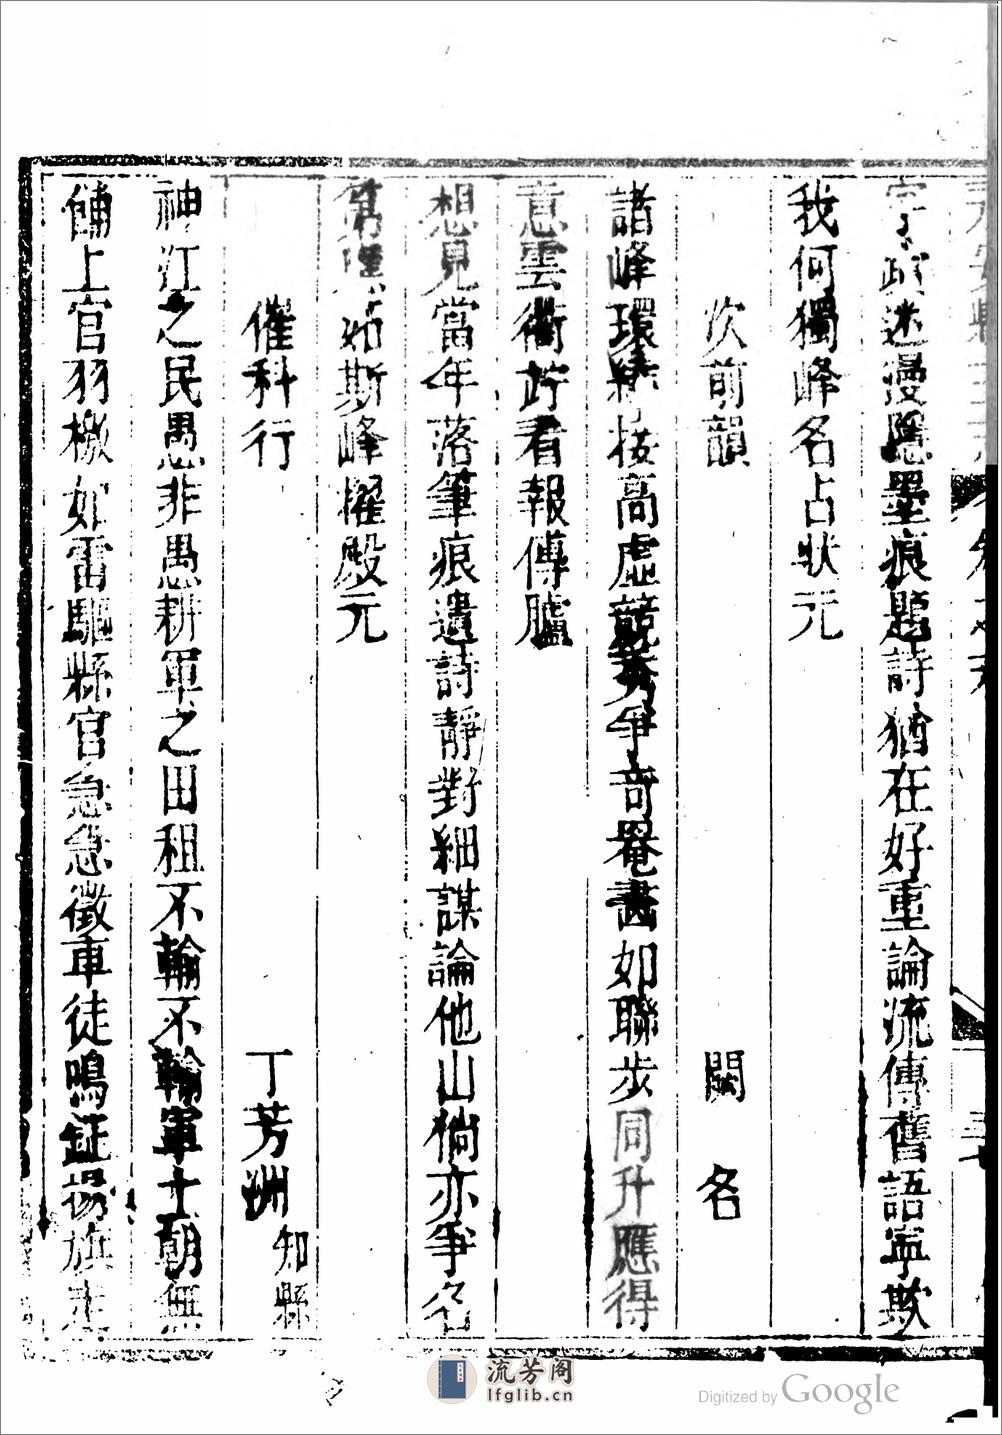 字蹟迷漫隱墨痕題詩猶在好重論流傳舊語寧欺
我何獨峰名占狀元
次前韻
闕名
諸峰環繞接高虛競秀爭奇罨畵如聯步同升應得
意雲衢竚看報傳臚
想見當年落筆痕遺詩靜對細謀論他山徜亦爭名
第 如斯峰擢殿元
催科行
丁芳洲知縣
神江之民愚非愚耕軍之田租不輸不輸軍士朝無
餔上官羽檄如雷驅縣官急急徵車徒鳴鉦揚旗走
流芳阁
lfglib.cn
Digitized by Google